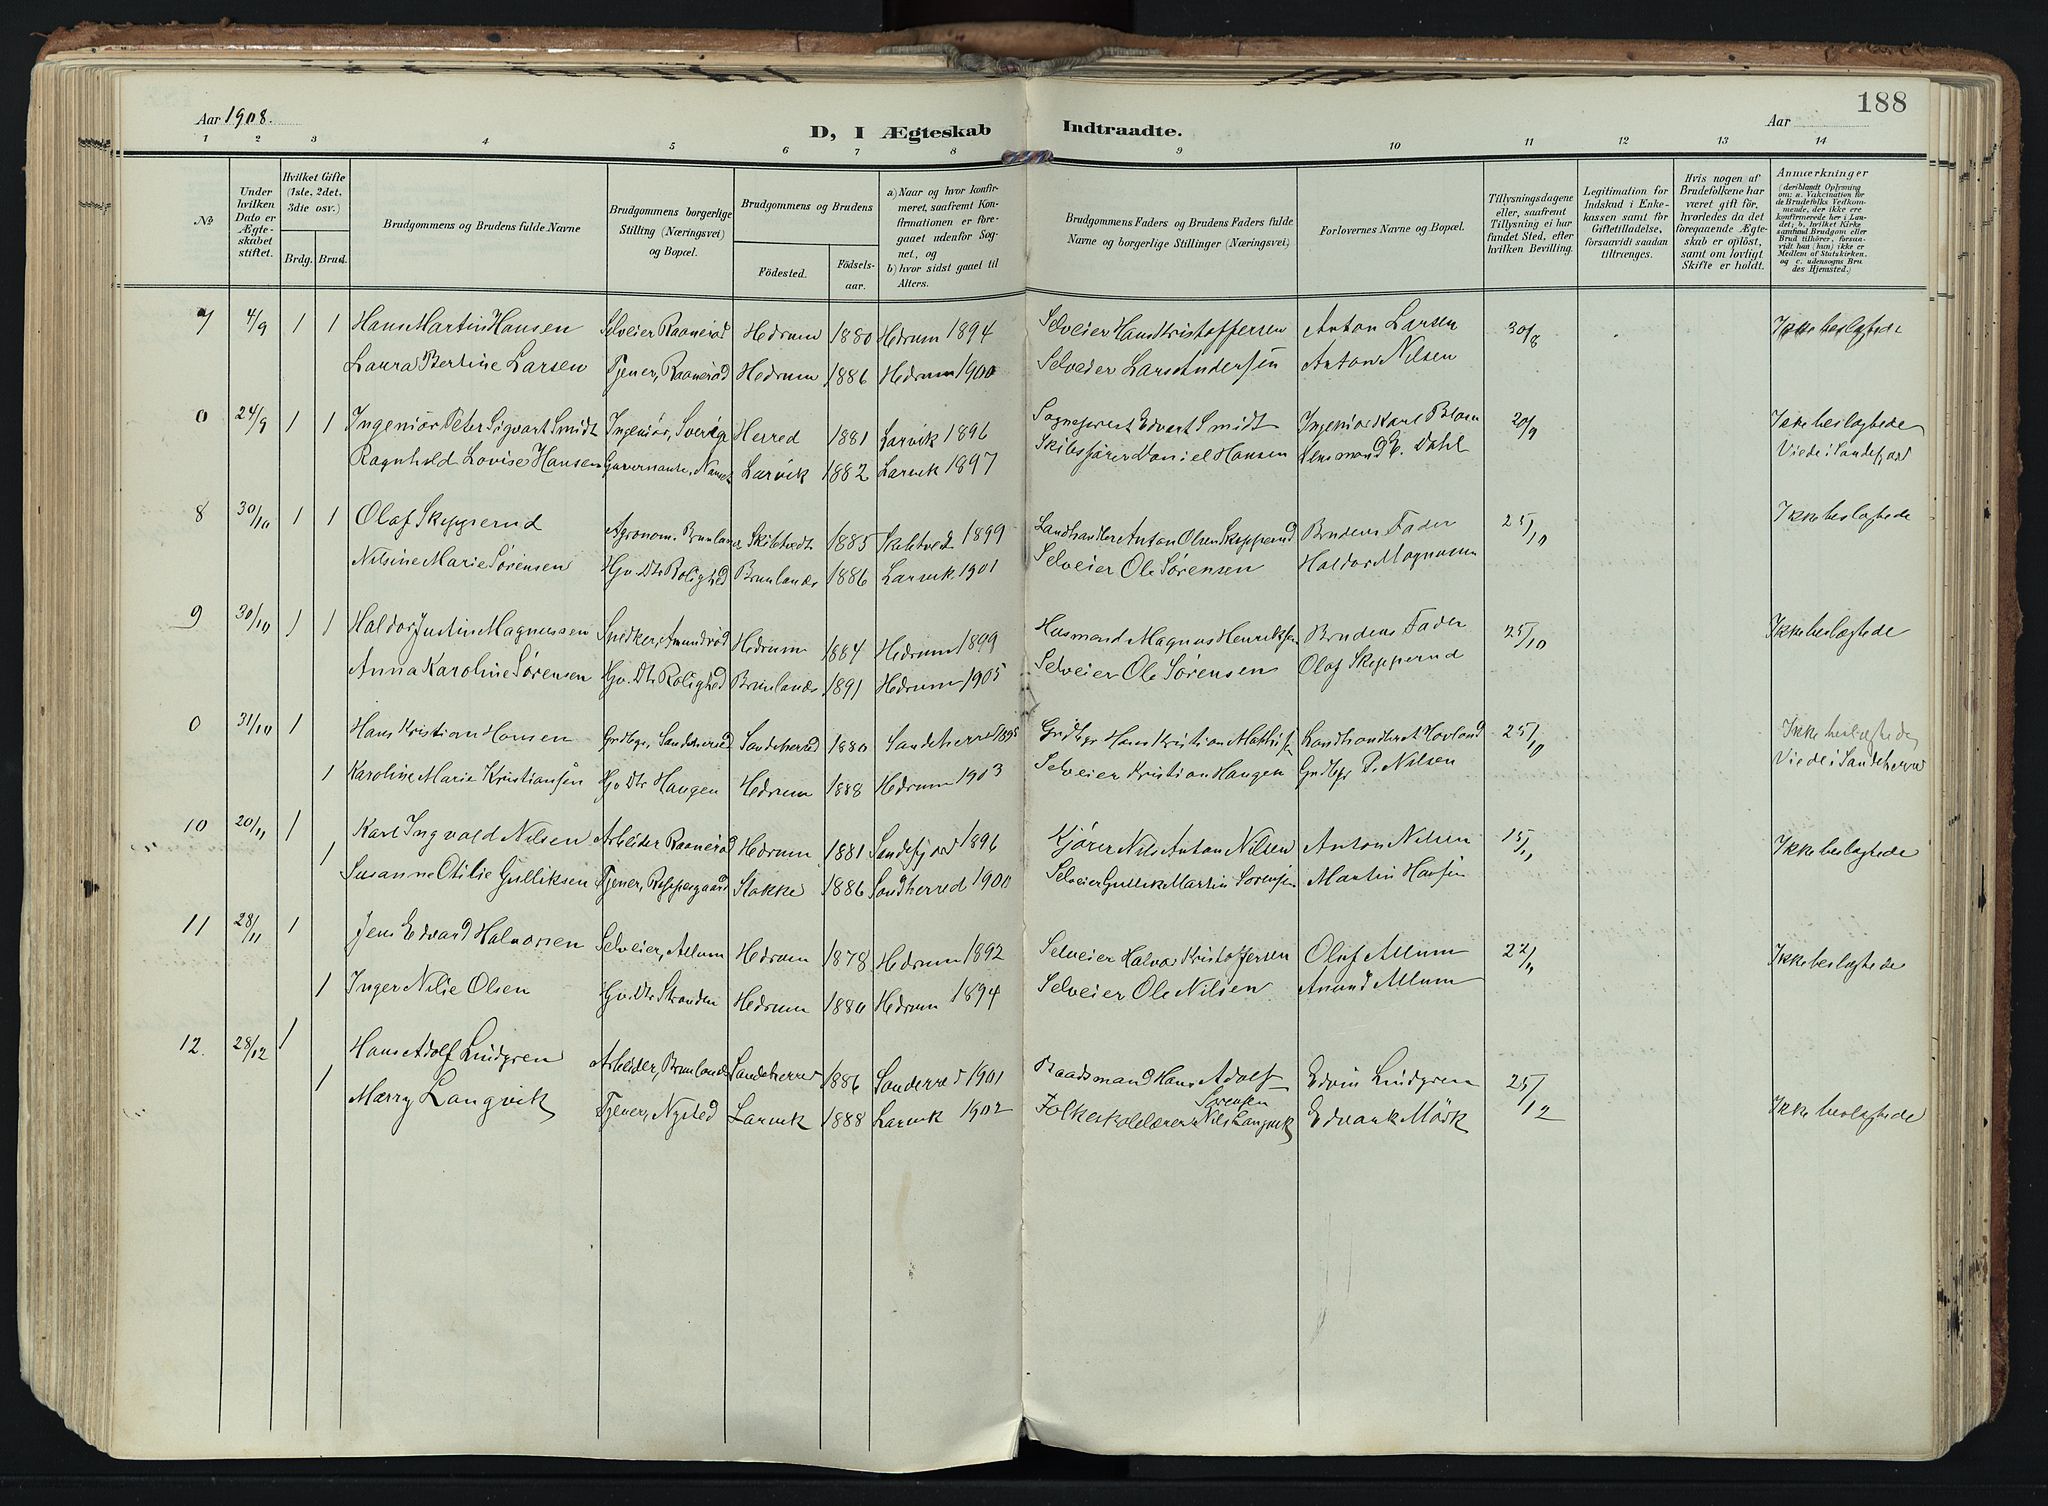 188
Aar 1908.
D, I Ægteskab Indtraadte.
Aar
1 2 3 4 5 6 7 8 9 10 11 12 13 14
No
Under hvilken Dato er Ægteskabet stiftet.
Hvilket Gifte (1ste, 2det, 3die osv.)
Brdg. Brud.
Brudgommens og Brudens fulde Navne
Brudgommens borgerlige Stilling (Næringsvei) og Bopæl.
Brudgommens og Brudens
Födested.
Födselsaar.
a) Naar og hvor konfirmeret, saafremt Konfirmationen er foregaaet udenfor Sognet, og
b) hvor sidst gaaet til Alters.
Brudgommens Faders og Brudens Faders fulde Navne og borgerlige Stillinger (Næringsvei)
Forlovernes Navne og Bopæl.
Tillysningsdagene eller, saafremt Tillysning ei har fundet Sted, efter hvilken Bevilling.
Legitimation for Indskud i Enkekassen samt for Giftetilladelse, forsaavidt saadan tiltrænges.
Hvis nogen af Brudefolkene har været gift før, hvorledes da det foregaaende Ægteskab er oplöst, samt om lovligt Skifte er holdt.
Anmærkninger
(deriblandt Oplysning om: a. Vakcination for de Brudefolks Vedkommende, der ikke ere konfirmerede her i Landet; b. hvilket Kirkesamfund Brudgom eller Brud tilhörer, forsaavidt han (hun) ikke er Medlem af Statskirken, og c. udensogns Brudes Hjemsted.)
7 4/9 1 1 Hans Martin Hansen Selveier Raanerød Hedrum 1880 Hedrum 1894 Selveier Hans Kristoffersen Anton Larsen 30/8 Ikke beslægtede
Laura Bertine Larsen Tjener, Raanerød Hedrum 1886 Hedrum 1900 Selveier Lars Andersen Anton Nilsen
0 24/9 1 1 Ingeniør Peter Sigvart Smidt Ingeniør, Sverige Herred 1881 Larvik 1896 Sogneprest Edvart Smidt Ingeniør Karl 20/9 Ikke beslægtede
Ragnhild Lovise Hansen Guvernante, Larvik 1882 Larvik 1897 Skibsfører Daniel Hansen E. Dahl Viede i Sandefjord
8 30/10 1 1 Olaf Skepperud Agronom. Brunlanes Skibtvedt 1885 Skibtvedt 1899 Landhandler Anton Olsen Skepperud Brudens Fader 25/10 Ikke beslægtede
Nilsine Marie Sørensen Gjv. Dtr Rolighed Brunlanes 1886 Larvik 1901 Selveier Ole Sørensen Haldor Magnussen
9 30/10 1 1 Haldor Justin Magnussen Snedker, Amundrød Hedrum 1884 Hedrum 1899 Husmand Magnus Henriksen Brudens Fader 25/10 Ikke beslægtede
Anna Karoline Sørensen Gjv. Dtr Rolighed Brunlanes 1891 Hedrum 1905 Selveier Ole Sørensen Olaf Skepperud
0 31/10 1 Hans Kristian Hansen Grdbgr, Sandeherred Sandeherred 1880 Sandeherred 1895 Grdbgr Hans Kristian Mathisen Landhandler A Hovland 25/10 Ikke beslægtede
1 Karoline Marie Kristiansen Gjv. Dtr Haugen Hedrum 1888 Hedrum 1903 Selveier Kristian Haugen Grdbgr D. Nilsen Viede i Sandeherred
10 20/11 1 Karl Ingvald Nilsen Arbeider Raanerød Hedrum 1881 Sandefjord 1896 Kjører Nils Anton Nilsen Anton Nilsen 15/11 Ikke beslægtede
1 Susanne Otilie Gulliksen Tjener, Stokke 1886 Sandherred 1900 Selveier Gullik Martin Sørensen Martin Hansen
11 28/11 1 Jens Edvard Halvorsen Selveier, Allum Hedrum 1878 Hedrum 1892 Selveier Halvor Kristoffersen Oluf Allum 22/11 Ikke beslægtede
1 Inger Nilie Olsen Gjv. Dtr Stranden Hedrum 1880 Hedrum 1894 Selveier Ole Nilsen Amund Allum
12. 28/12 1 Hans Adolf Lindgren Arbeider, Brunlanes Sandeherred 1886 Sanderred 1901 Baadsmand Hans Adolf Sørensen Edvin Lindgren 25/12
1 Marry Langvik Tjener, Nysted Larvik 1888 Larvik 1902 Folkeskolelærer Nils Langvik Edvark Mørk Ikke beslægtede